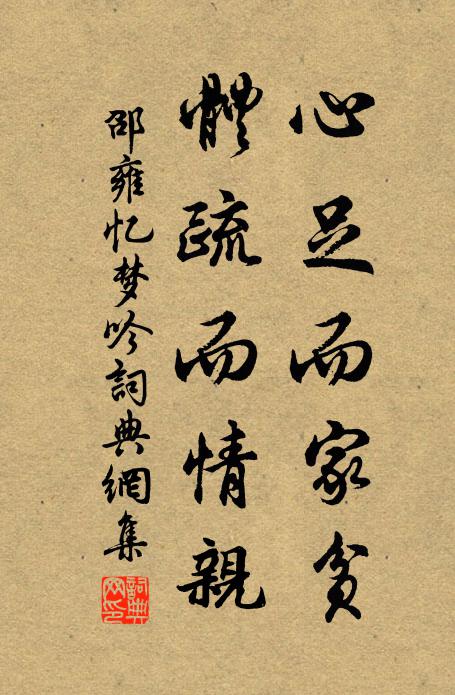 心足而家貧
體疏而情親
邵雍忆梦吟詞典網集
詞典网印